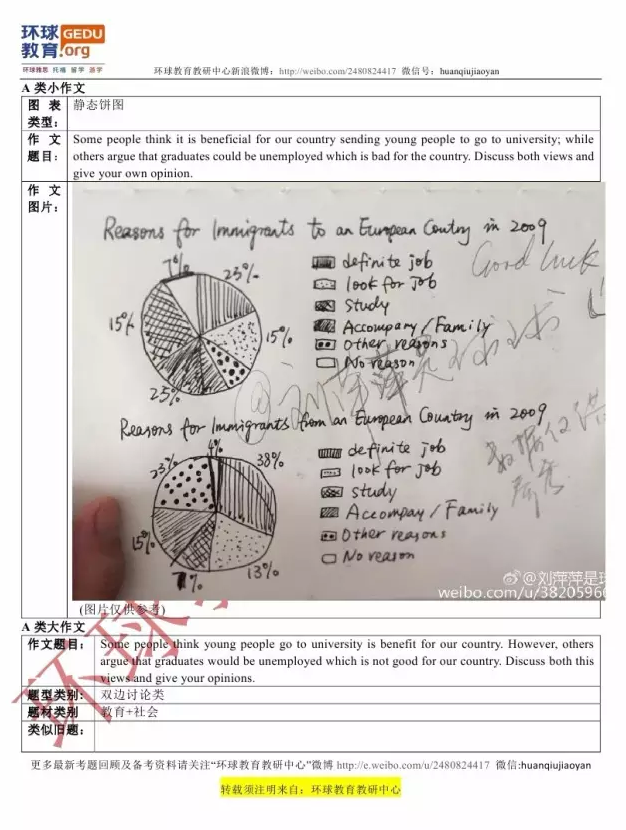 环球 GEDU
教育.org
环球雅思 托福 留学 游学
环球教育教研中心新浪微博：http://weibo.com/2480824417 微信号：huanqiujiaoyan
A 类小作文
图 表 类型： 静态饼图
作 文 题目： Some people think it is beneficial for our country sending young people to go to university; while
others argue that graduates could be unemployed which is bad for the country. Discuss both views and
give your own opinion.
作 文
图片：
Reasons for Immigrants to an European Coutry in 2009
7%
25%
15%
15%
25%
definite job
look for job
Study
Accompary / Family
Other reasons
No reason
Good luck
Reasons for Immigrants from an European Country in 2009
4%
38%
23%
15%
13%
7%
definite job
look for job
study
Accompay / Family
Other reasons
No reason
@刘萍萍是环
weibo.com/u/38205960
(图片仅供参考)
A 类大作文
作文题目： Some people think young people go to university is benefit for our country. However, others
argue that graduates would be unemployed which is not good for our country. Discuss both this
views and give your opinions.
题型类别： 双边讨论类
题材类别 教育+社会
类似旧题：
更多最新考题回顾及备考资料请关注“环球教育教研中心”微博 http://e.weibo.com/u/2480824417 微信:huanqiujiaoyan
转载须注明来自：环球教育教研中心